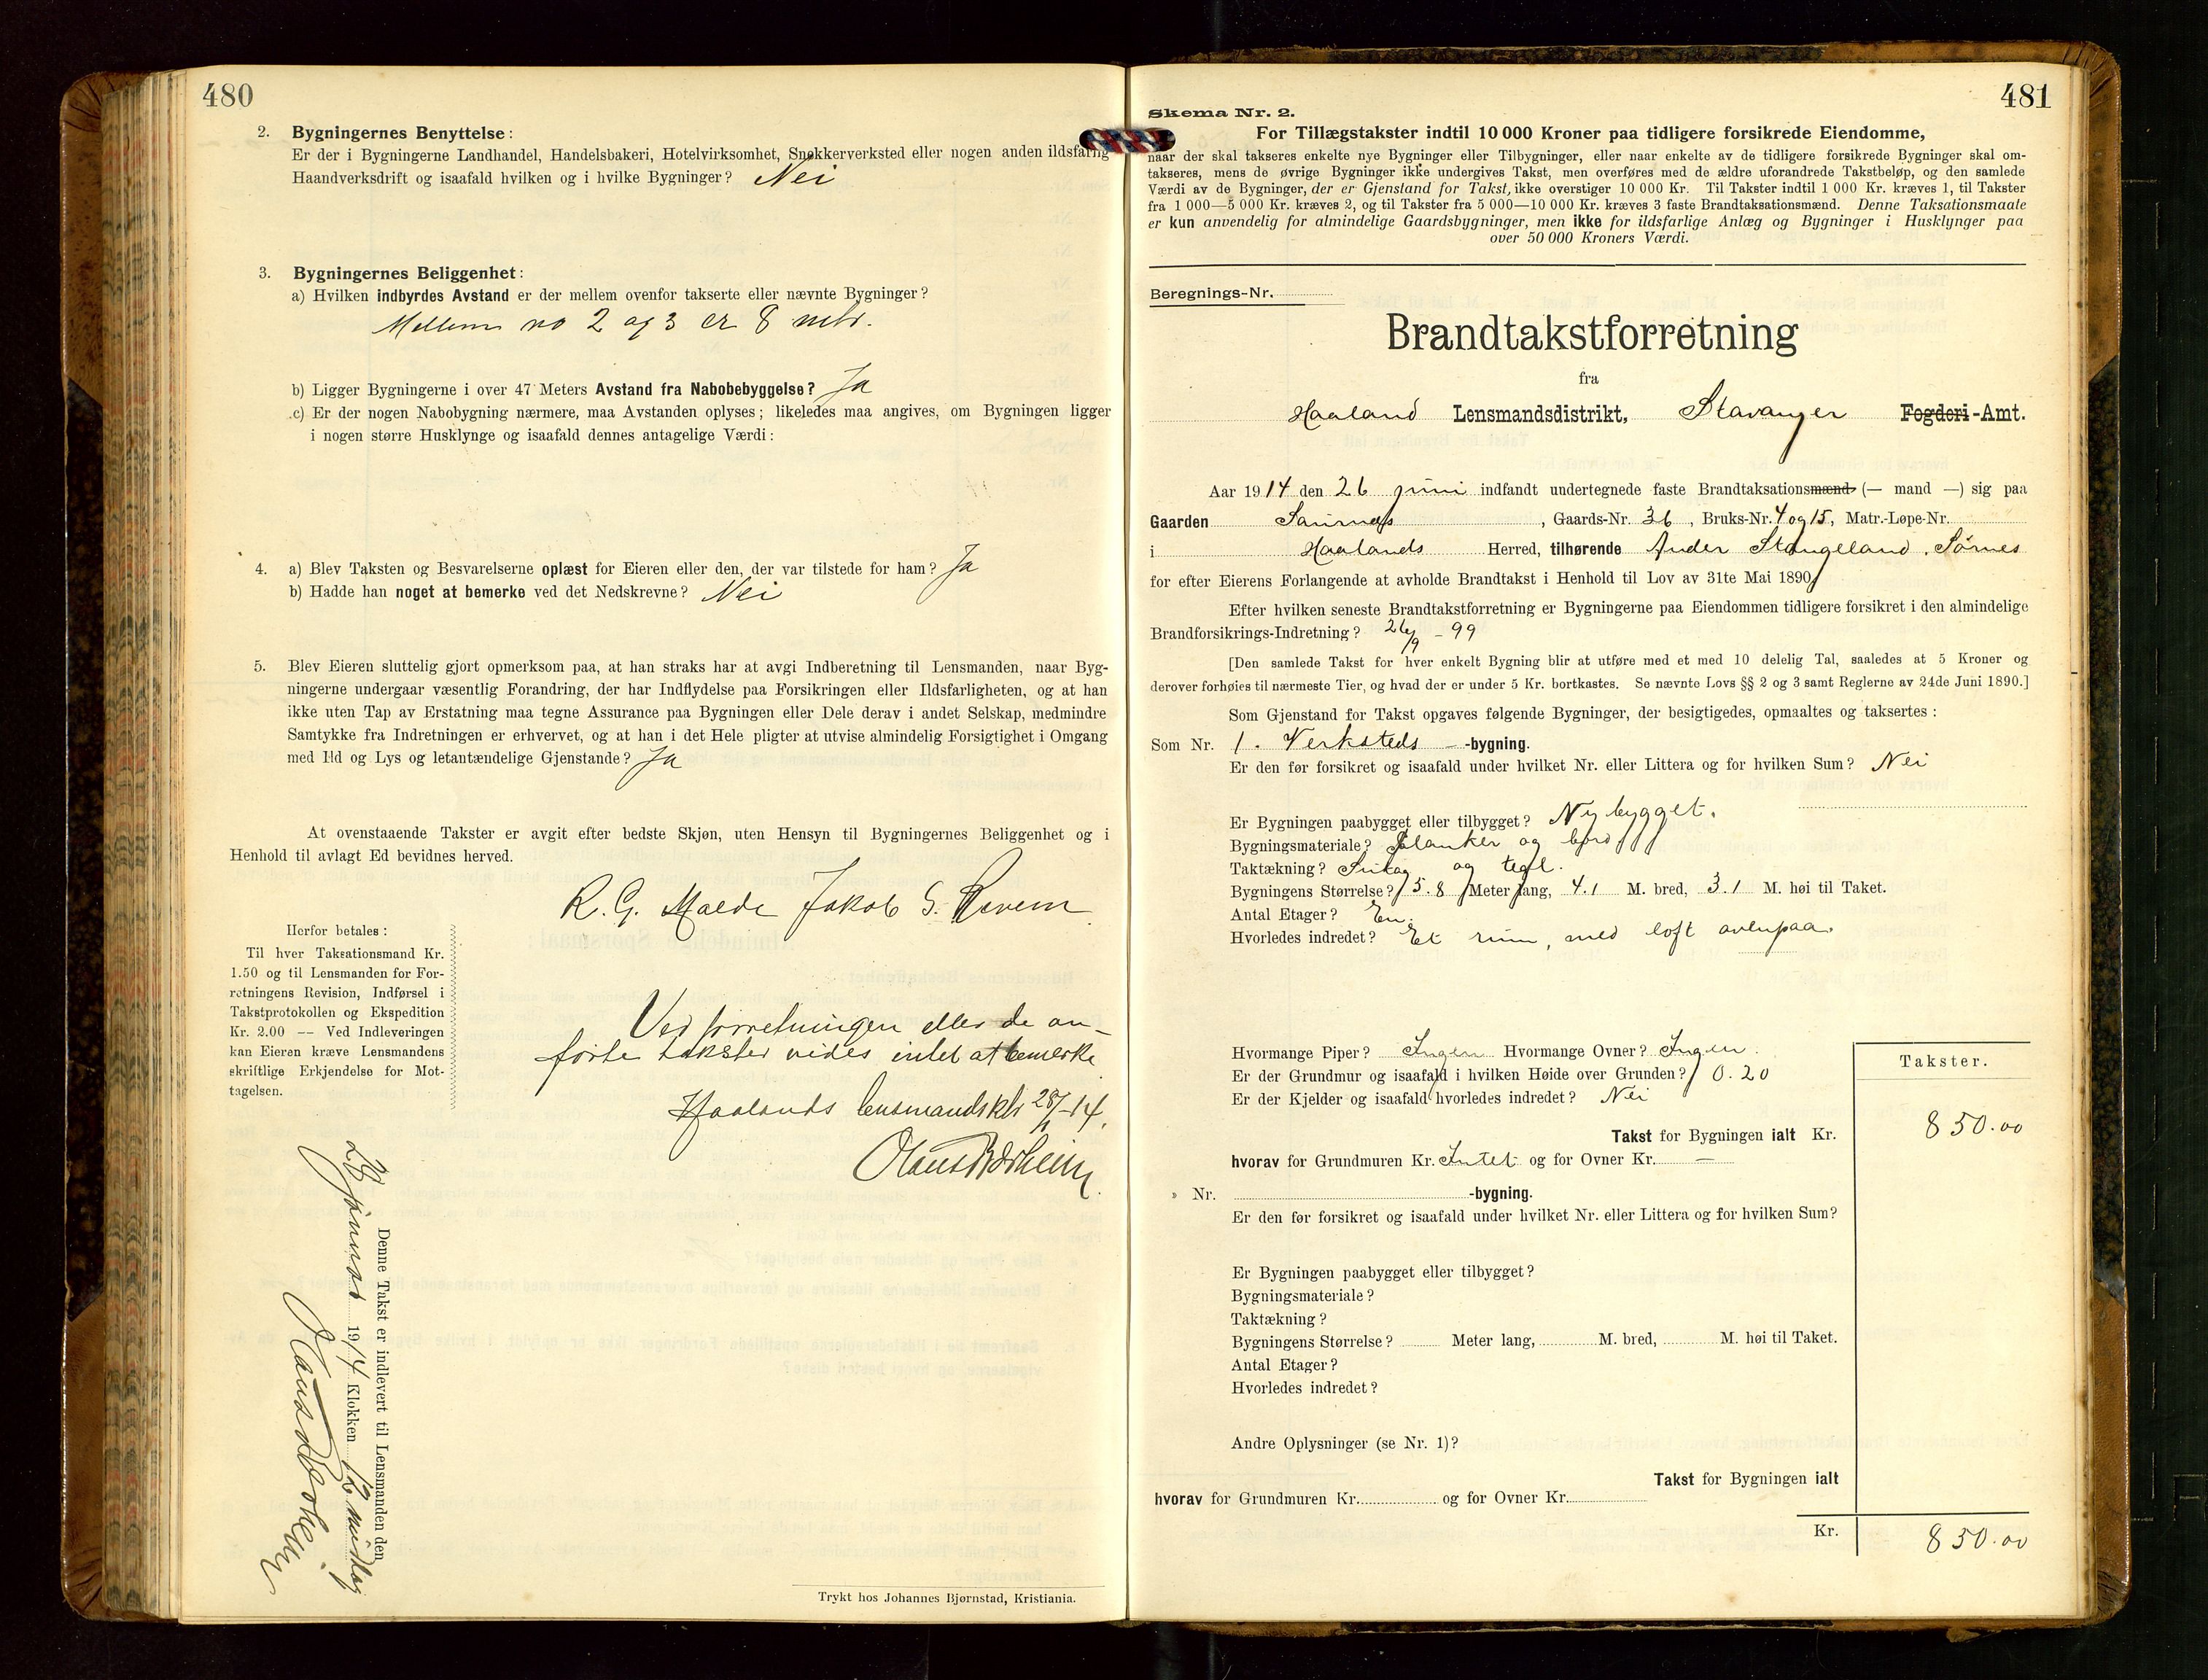 480
2. Bygningernes Benyttelse:
Er der i Bygningerne Landhandel, Handelsbakeri, Hotelvirksomhet, Snekkerverksted eller nogen anden ildsfarlig
Haandverksdrift og isaafald hvilken og i hvilke Bygninger? Nei
3. Bygningernes Beliggenhet:
a) Hvilken indbyrdes Avstand er der mellem ovenfor takserte eller nævnte Bygninger?
Mellem no 2 og 3 er 8 mtr.
b) Ligger Bygningerne i over 47 Meters Avstand fra Nabobebyggelse? Ja
c) Er der nogen Nabobygning nærmere, maa Avstanden oplyses; likeledes maa angives, om Bygningen ligger
i nogen større Husklynge og isaafald dennes antagelige Værdi:
4. a) Blev Taksten og Besvarelserne oplæst for Eieren eller den, der var tilstede for ham? Ja
b) Hadde han noget at bemerke ved det Nedskrevne? Nei
5. Blev Eieren sluttelig gjort opmerksom paa, at han straks har at avgi Indberetning til Lensmanden, naar Byg-
ningerne undergaar væsentlig Forandring, der har Indflydelse paa Forsikringen eller Ildsfarligheten, og at han
ikke uten Tap av Erstatning maa tegne Assurance paa Bygningen eller Dele derav i andet Selskap, medmindre
Samtykke fra Indretningen er erhvervet, og at han i det Hele pligter at utvise almindelig Forsigtighet i Omgang
med Ild og Lys og letantændelige Gjenstande? Ja
At ovenstaaende Takster er avgit efter bedste Skjøn, uten Hensyn til Bygningernes Beliggenhet og i
Henhold til avlagt Ed bevidnes herved.
R. G. Malde Jakob S.
Herfor betales:
Til hver Taksationsmand Kr.
1.50 og til Lensmanden for For-
retningens Revision, Indførsel i
Takstprotokollen og Ekspedition
Kr. 2.00 — Ved Indleveringen
kan Eieren kræve Lensmandens
skriftlige Erkjendelse for Mot-
tagelsen.
Ved forretningen eller de an-
førte takster vides intet at bemerke
Haalands lensmandskts 28/1-14.
Denne Takst er indlevert til Lensmanden den
28 januar 1914 Klokken 12 middag
Trykt hos Johannes Bjørnstad, Kristiania.
481
Skema Nr. 2.
For Tillægstakster indtil 10 000 Kroner paa tidligere forsikrede Eiendomme,
naar der skal takseres enkelte nye Bygninger eller Tilbygninger, eller naar enkelte av de tidligere forsikrede Bygninger skal om-
takseres, mens de øvrige Bygninger ikke undergives Takst, men overføres med de ældre uforandrede Takstbeløp, og den samlede
Værdi av de Bygninger, der er Gjenstand for Takst, ikke overstiger 10 000 Kr. Til Takster indtil 1 000 Kr. kræves 1, til Takster
fra 1 000—5 000 Kr. kræves 2, og til Takster fra 5 000—10 000 Kr. kræves 3 faste Brandtaksationsmænd. Denne Taksationsmaate
er kun anvendelig for almindelige Gaardsbygninger, men ikke for ildsfarlige Anlæg og Bygninger i Husklynger paa
over 50 000 Kroners Værdi.
Beregnings-Nr.
Brandtakstforretning
fra
Haaland Lensmandsdistrikt, Stavanger Fogderi-Amt.
Aar 1914 den 26 juni indfandt undertegnede faste Brandtaksationsmænd (— mand —) sig paa
Gaarden , Gaards-Nr. 36, Bruks-Nr. 4 og 15, Matr.-Løpe-Nr.
i Haalands Herred, tilhørende Ander Stangeland, Sörnes
for efter Eierens Forlangende at avholde Brandtakst i Henhold til Lov av 31te Mai 1890
Efter hvilken seneste Brandtakstforretning er Bygningerne paa Eiendommen tidligere forsikret i den almindelige
Brandforsikrings-Indretning? 26/9 - 99
[Den samlede Takst for hver enkelt Bygning blir at utføre med et med 10 delelig Tal, saaledes at 5 Kroner og
derover forhøies til nærmeste Tier, og hvad der er under 5 Kr. bortkastes. Se nævnte Lovs §§ 2 og 3 samt Reglerne av 24de Juni 1890.]
Som Gjenstand for Takst opgaves følgende Bygninger, der besigtigedes, opmaaltes og taksertes:
Som Nr. 1. Verksteds -bygning.
Er den før forsikret og isaafald under hvilket Nr. eller Littera og for hvilken Sum? Nei
Er Bygningen paabygget eller tilbygget? Ny bygget.
Bygningsmateriale? Planker og bord
Taktækning? og tegl.
Bygningens Størrelse? 5.8 Meter lang, 4.1 M. bred, 3.1 M. høi til Taket.
Antal Etager? En.
Hvorledes indredet? Et rum, med loft ovenpaa.
Hvormange Piper? Ingen Hvormange Ovner? Ingen.
Er der Grundmur og isaafald i hvilken Høide over Grunden? 0.20
Er der Kjelder og isaafald hvorledes indredet? Nei
Takster.
Takst for Bygningen ialt Kr. 850.00
hvorav for Grundmuren Kr. Intet og for Ovner Kr. —
» Nr. -bygning.
Er den før forsikret og isaafald under hvilket Nr. eller Littera og for hvilken Sum?
Er Bygningen paabygget eller tilbygget?
Bygningsmateriale?
Taktækning?
Bygningens Størrelse? Meter lang, M. bred, M. høi til Taket.
Antal Etager?
Hvorledes indredet?
Andre Oplysninger (se Nr. 1)?
Takst for Bygningen ialt
hvorav for Grundmuren Kr. og for Ovner Kr.
Kr. 850.00